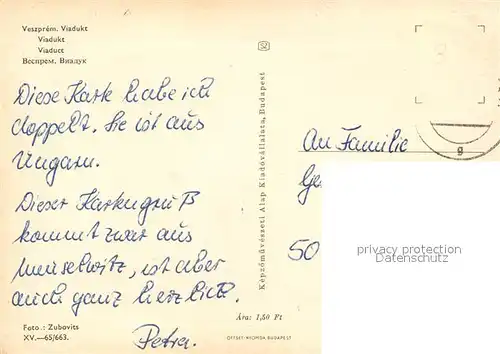 Veszprém. Viadukt
Viadukt
Viaduct
Веспрем. Виадук
Diese Karte habe ich
doppelt. Sie ist aus
Ungarn.
Dieser Kartengruß
kommt zwar aus
Meuselwitz, ist aber
auch ganz herzlich.
Petra.
Foto.: Zubovits
XV.—65/663.
Képzőművészeti Alap Kiadóvállalata, Budapest
Ára: 1,50 Ft
OFFSET NYOMDA BUDAPEST
An Familie
Ge
50
privacy protection
Datenschutz
9